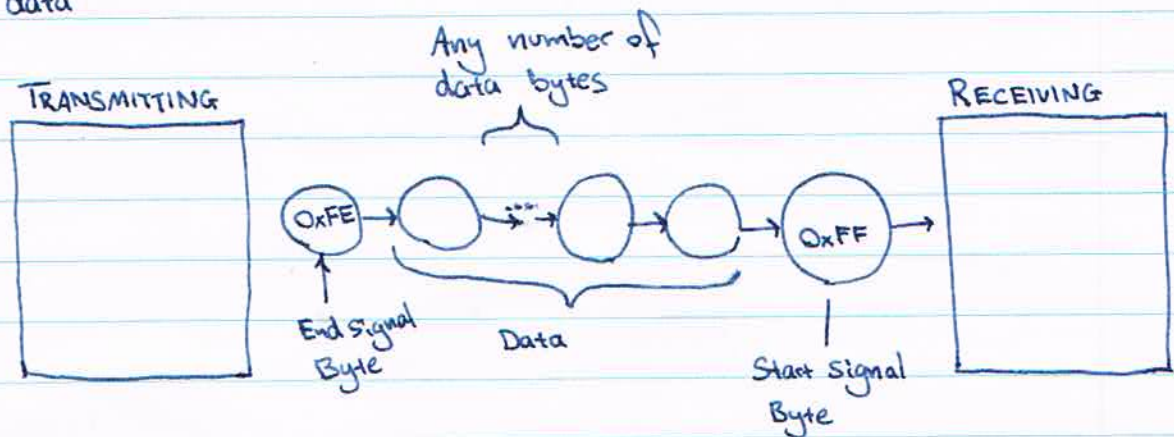 data
Any number of
data bytes
TRANSMITTING
RECEIVING
0xFE
0xFF
End signal
Byte
Data
Start Signal
Byte